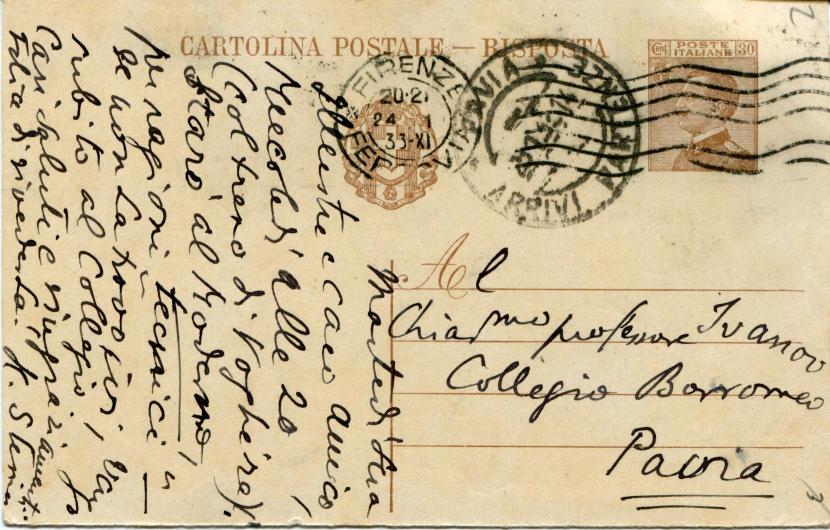 CARTOLINA POSTALE — RISPOSTA
POSTE
ITALIANE
Cent. 30
FIRENZE
20-21
24 1
33-XI
FERR
ARRIVI
Al
Chiar.mo professore Ivanov
Collegio Borromeo
Pavia
Martedì sera
Illustre e caro amico,
Mercoledì alle 20
(col treno di Voghera).
Starò al Moderno,
per ragioni "tecniche"
se non La trovassi,
subito al Collegio.
Cari saluti e ringraziamenti
di rivederla.